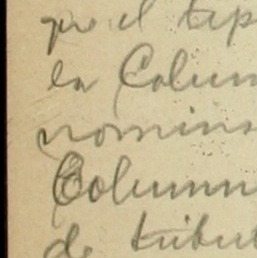 por el tip
la Colum
nomina
Column
de tribut